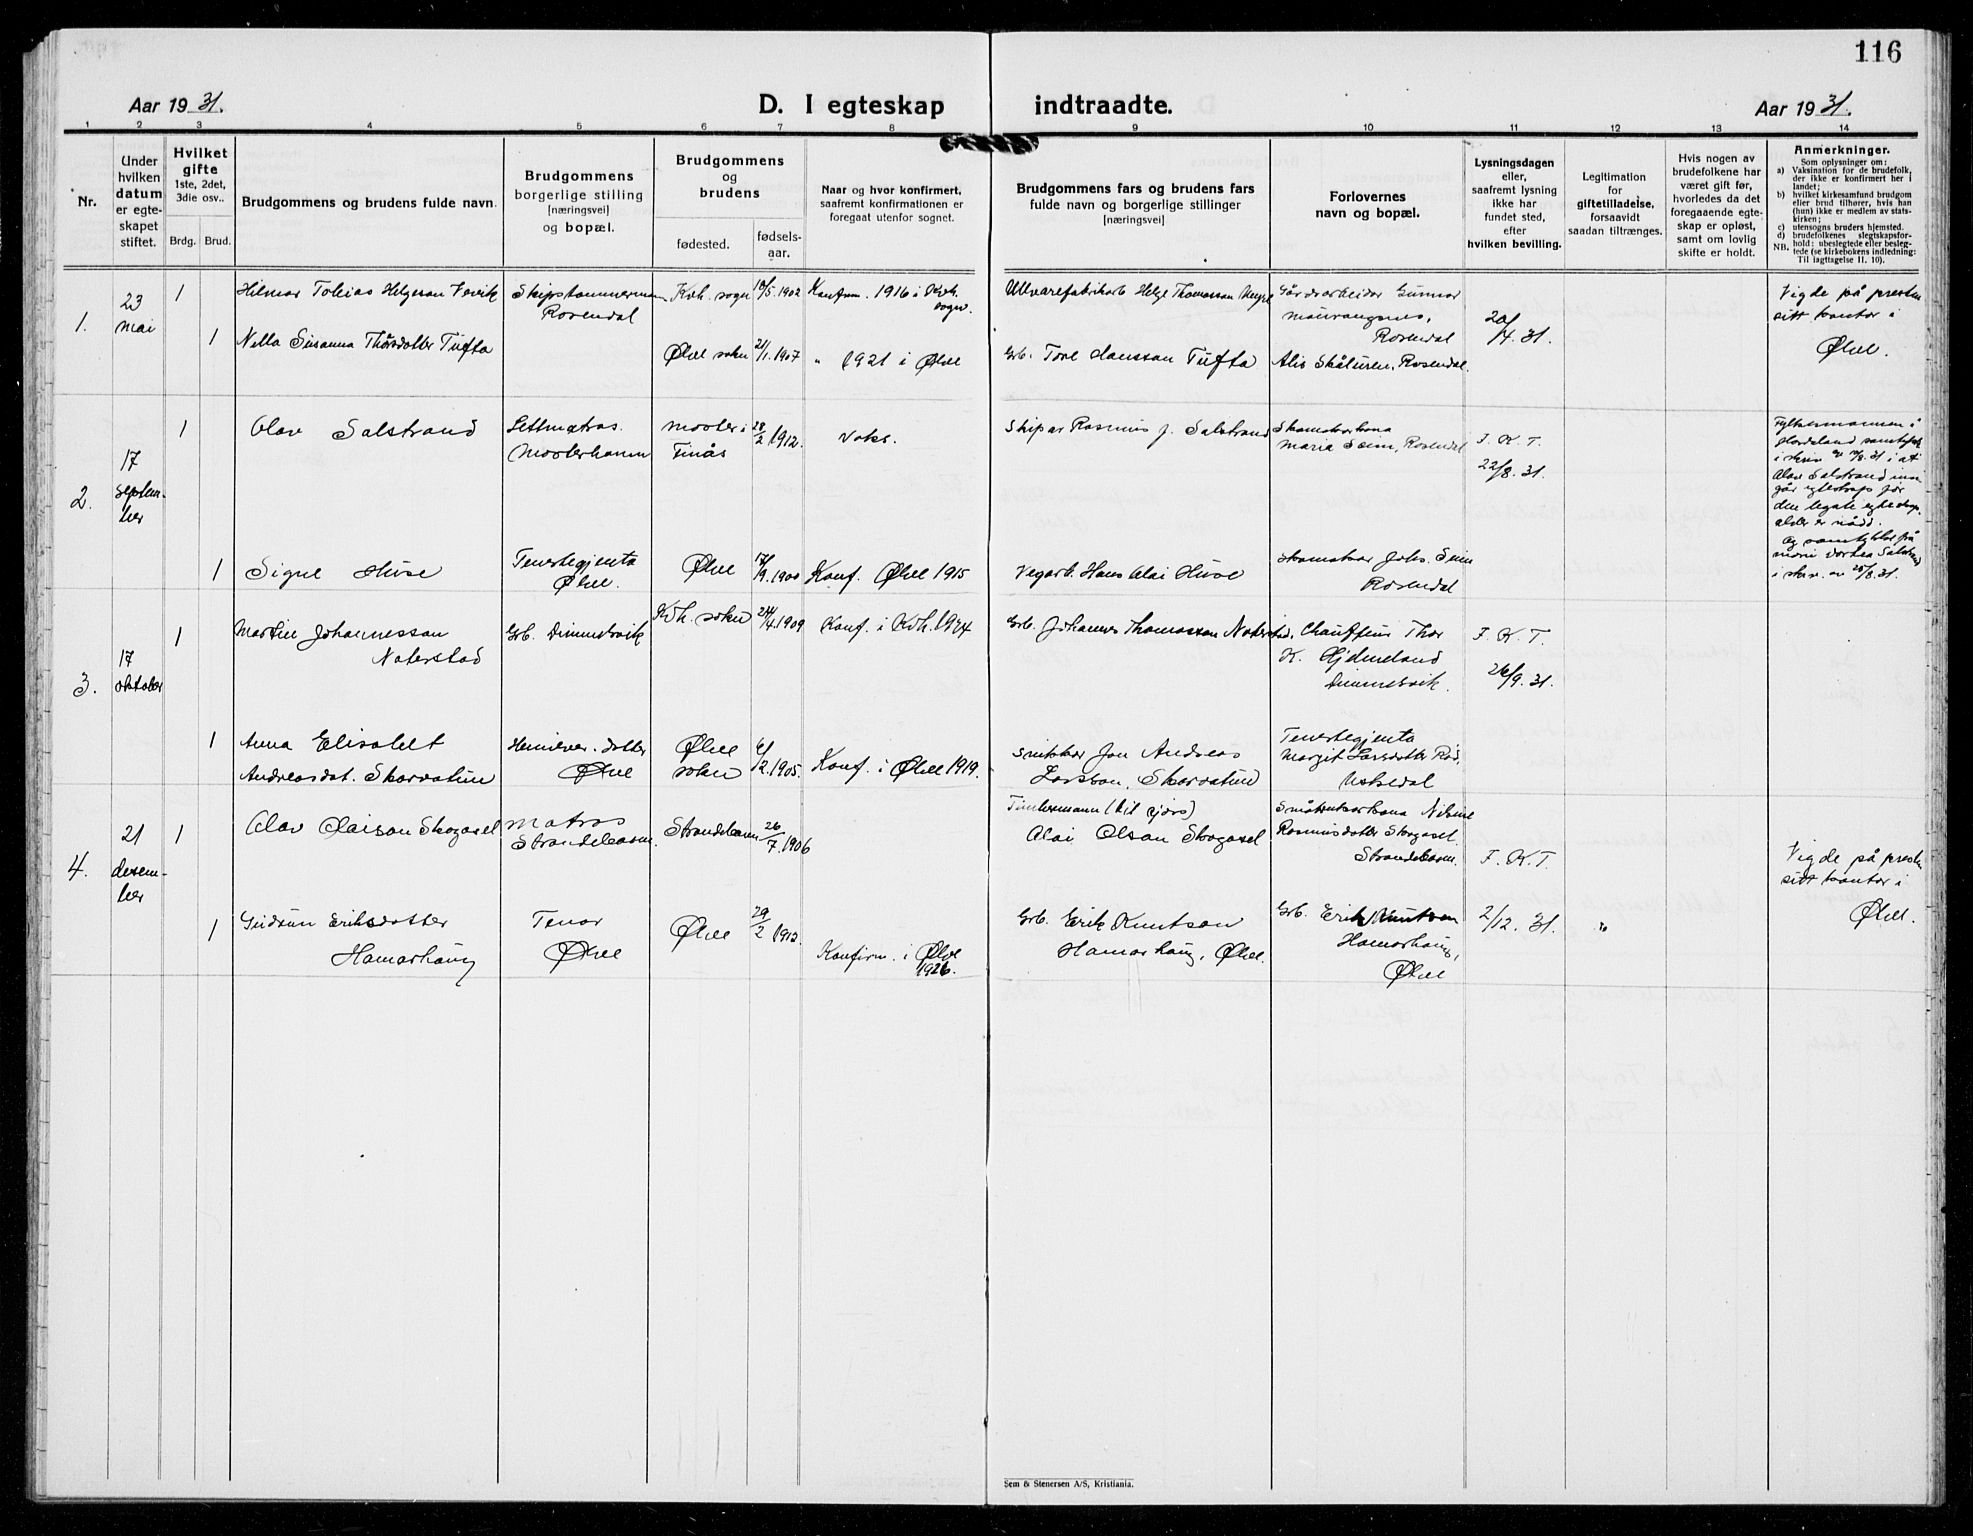 116
Aar 1931.
D. I egteskap
indtraadte.
Aar 1931.
1 2 3 4 5 6 7 8 9 10 11 12 13 14
Nr.
Under
hvilken
datum
er egte-
skapet
stiftet.
Hvilket
gifte
1ste, 2det,
3die osv..
Brdg. Brud.
Brudgommens og brudens fulde navn.
Brudgommens
borgerlige stilling
[næringsvei]
og bopæl.
Brudgommens
og
brudens
fødested.
fødsels-
aar.
Naar og hvor konfirmert,
saafremt konfirmationen er
foregaat utenfor sognet.
Brudgommens fars og brudens fars
fulde navn og borgerlige stillinger
[næringsvei]
Forlovernes
navn og bopæl.
Lysningsdagen
eller,
saafremt lysning
ikke har
fundet sted,
efter
hvilken bevilling.
Legitimation
for
giftetilladelse,
forsaavidt
saadan tiltrænges.
Hvis nogen av
brudefolkene har
været gift før,
hvorledes da det
foregaaende egte-
skap er opløst,
samt om lovlig
skifte er holdt.
Anmerkninger.
Som oplysninger om:
a) Vaksination for de brudefolk,
der ikke er konfirmert her i
landet;
b) hvilket kirkesamfund brudgom
eller brud tilhører, hvis han
(hun) ikke er medlem av stats-
kirken;
c) utensogns bruders hjemsted.
d) brudefolkenes slegtskapsfor-
hold: ubeslegtede eller besleg-
tede (se kirkebokens indledning:
NB. Til iagttagelse II. 10).
1.
23
mai
1
Hilmar Tobias Helgeson
Skipstømmermann
Rosendal
Kvh. sogn
10/5 1902
Konfirm. 1916 i Kvh.
sogn.
Helge Thomasson
Gårdsarbeider Gunnar
Maurangsnes,
Rosendal
20/4. 31.
Vigde på presten
sitt kontor i
Ølve.
1
Nella Susanna Thåresdotter Tufta
Ølve sokn
21/1. 1907
" 1921 i Ølve
Grb. Tore Hansson Tufta
Alis Skåluren, Rosendal.
2.
17
septem-
ber
1
Olav Salstrand
Lettmatros.
Mosterhamn
Moster i
Finås
28/2 1912.
Vaks.
Skipar Rasmus J. Salstrand
Skomakarkona
Maria Seim, Rosendal
F. K. T.
22/8. 31.
Fylkesmannen i
Hordaland samtykk
i skriv av 19/8. 31 i at
Olav Salstrand inn
går egteskap før
den legale egteskap.
alder er nådd.
Og samtykke frå
mori Dortea Salstrand
i skriv. av 25/8. 31.
1
Signe Huse
Tenestegjenta
Ølve.
Ølve
17/9. 1900
Konf. Ølve 1915
Vegarb. Hans Olai Huse
Skomakar Johs. Seim
Rosendal
3.
17
oktober
1
Martin Johannesson
Naterstad
Grb. Dimmelsvik
Kvh. sokn
24/4. 1909
Konf. i Kvh. 1924
Grb. Johannes Thomasson Naterstad.
Chauffeur Thor
K. Hjelmeland
Dimmelsvik.
F. K. T.
26/9. 31.
1
Anna Elisabet
Andreasdot. Skorvatun
Heimever. dotter
Ølve
Ølve
sokn
6/2. 1905.
Konf. i Ølve 1919.
Snikkar Jon Andreas
Larsson, Skarvatun
Tenestegjenta
Margit Larsdotter Rød,
Uskedal
4.
21
desem-
ber
1
Olav Olaison Skogasel
Matros
Strandebarm.
Strandebarm
26/7. 1906
Timbermann (til sjøs)
Olai Olson Skogasel
Småbrukarkona Nilsine
Rasmusdotter Skogasel.
Strandebarm.
F. K. T.
Vigde på presten
sitt kontor i
Ølve.
1
Gudrun Eriksdotter
Hamarhaug
Tenar
Ølve
Ølve
29/2 1912
Konfirm. i Ølve
1926.
Grb. Erik Knutson
Hamarhaug, Ølve.
Grb. Erik Knutson
Hamarhaug,
Ølve
2/12. 31.
"
Sem & Stenersen A/S, Kristiania.